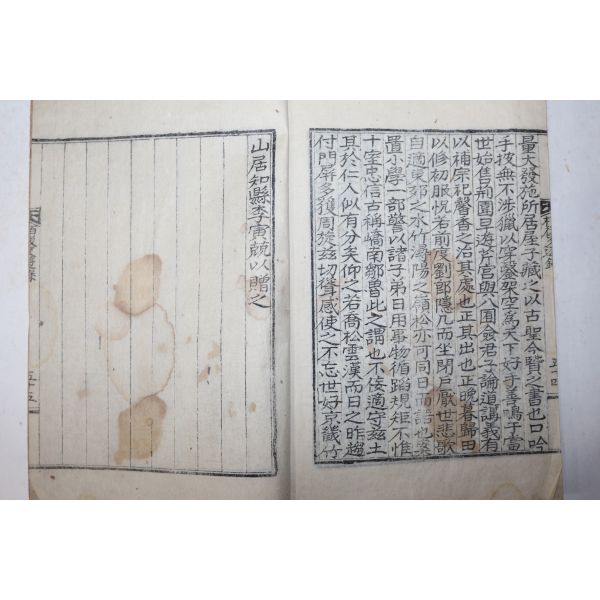 量大發施所居屋子藏之以古聖今賢之書也口吟
手披無不涉獵以穿鑿架空爲天下好才善鳴于當
世始隻荊園早游芹宮與八園僉君子論道講義有
以補宗祀馨香之治其處也正其出也正晩暮歸田
以修初服怳若前度劉郎隱几而坐閉戶厭世悲歌
自適東郊之水竹潯陽之嶺松亦可同日而語也案
置小學一部警以諸子弟日用事物循蹈規矩不惟
十室忠信古稱嶠南鄒魯此之謂也不佞適守玆土
其於仁人似有分矣仰之若喬松雲漢而日之昨趨
付門屛多獲周旋玆切聲感使之不忘世好京畿竹
五十四
山居知縣李寅兢以贈之
五十五